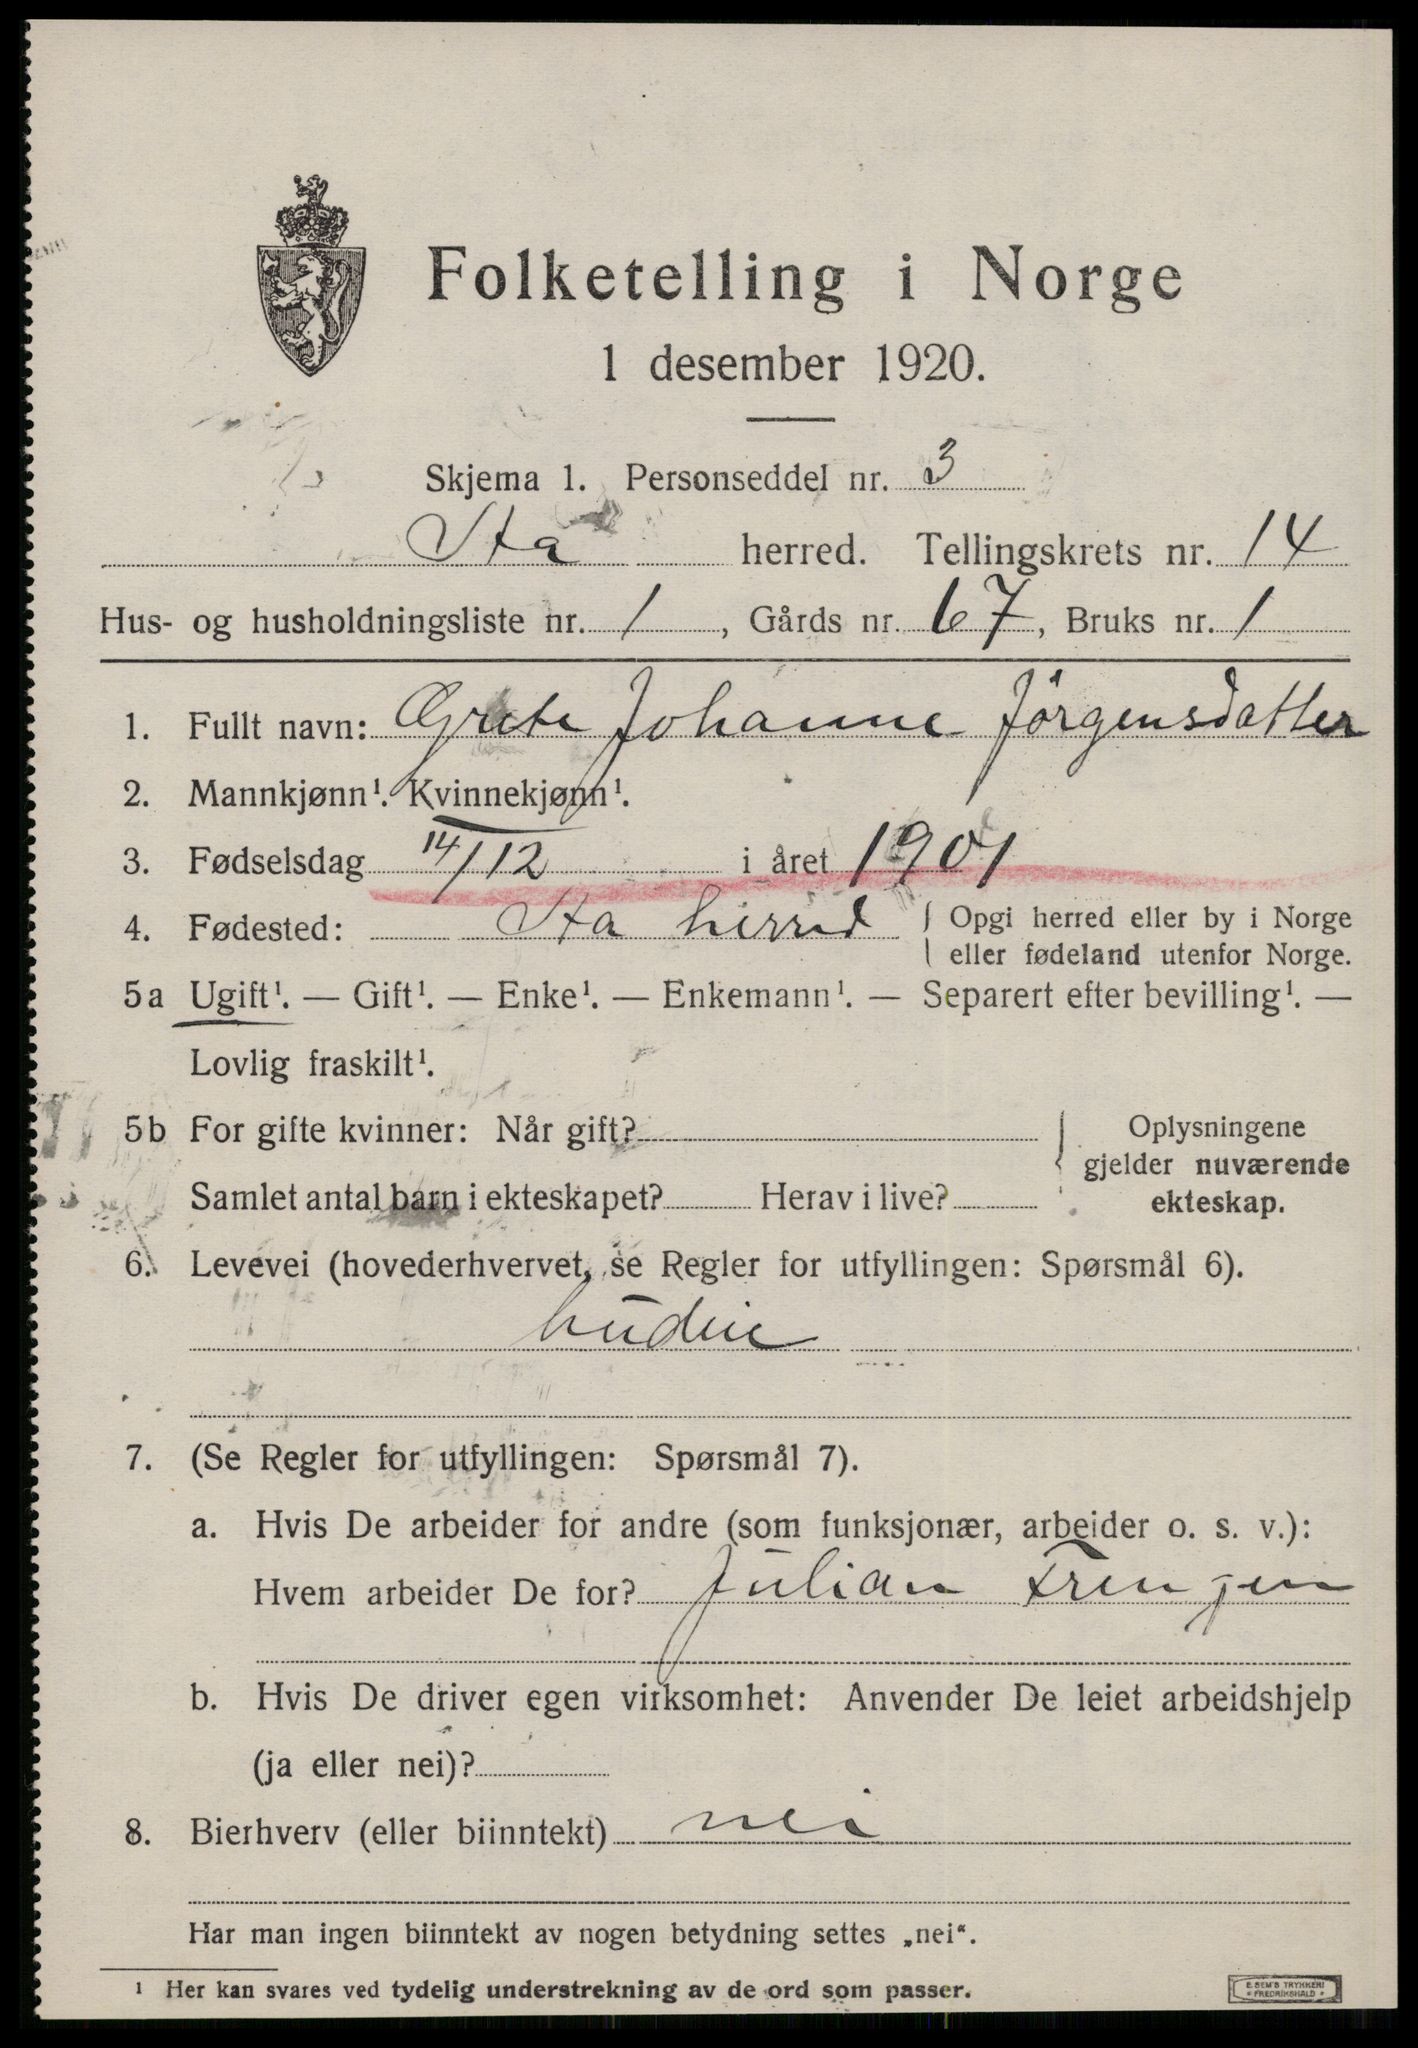 Folketelling i Norge
1 desember 1920.
Skjema 1. Personseddel nr. 3
Sta herred. Tellingskrets nr. 14
Hus- og husholdningsliste nr. 1, Gårds nr. 67, Bruks nr. 1
1. Fullt navn: Grete Johanne Jörgensdatter
2. Mannkjønn¹. Kvinnekjønn¹.
3. Fødselsdag 14/12 i året 1901
4. Fødested: Sta herred { Opgi herred eller by i Norge
eller fødeland utenfor Norge.
5a Ugift¹. — Gift¹. — Enke¹. — Enkemann¹. — Separert efter bevilling¹. —
Lovlig fraskilt¹.
5b For gifte kvinner: Når gift?
Samlet antal barn i ekteskapet? Herav i live?
Oplysningene
gjelder nuværende
ekteskap.
6. Levevei (hovederhvervet, se Regler for utfyllingen: Spørsmål 6).
budeie
7. (Se Regler for utfyllingen: Spørsmål 7).
a. Hvis De arbeider for andre (som funksjonær, arbeider o. s. v.):
Hvem arbeider De for? Julian
b. Hvis De driver egen virksomhet: Anvender De leiet arbeidshjelp
(ja eller nei)?
8. Bierhverv (eller biinntekt) nei
Har man ingen biinntekt av nogen betydning settes „nei“.
¹ Her kan svares ved tydelig understrekning av de ord som passer.
E. SEM'S TRYKKERI
* FREDRIKSHALD *